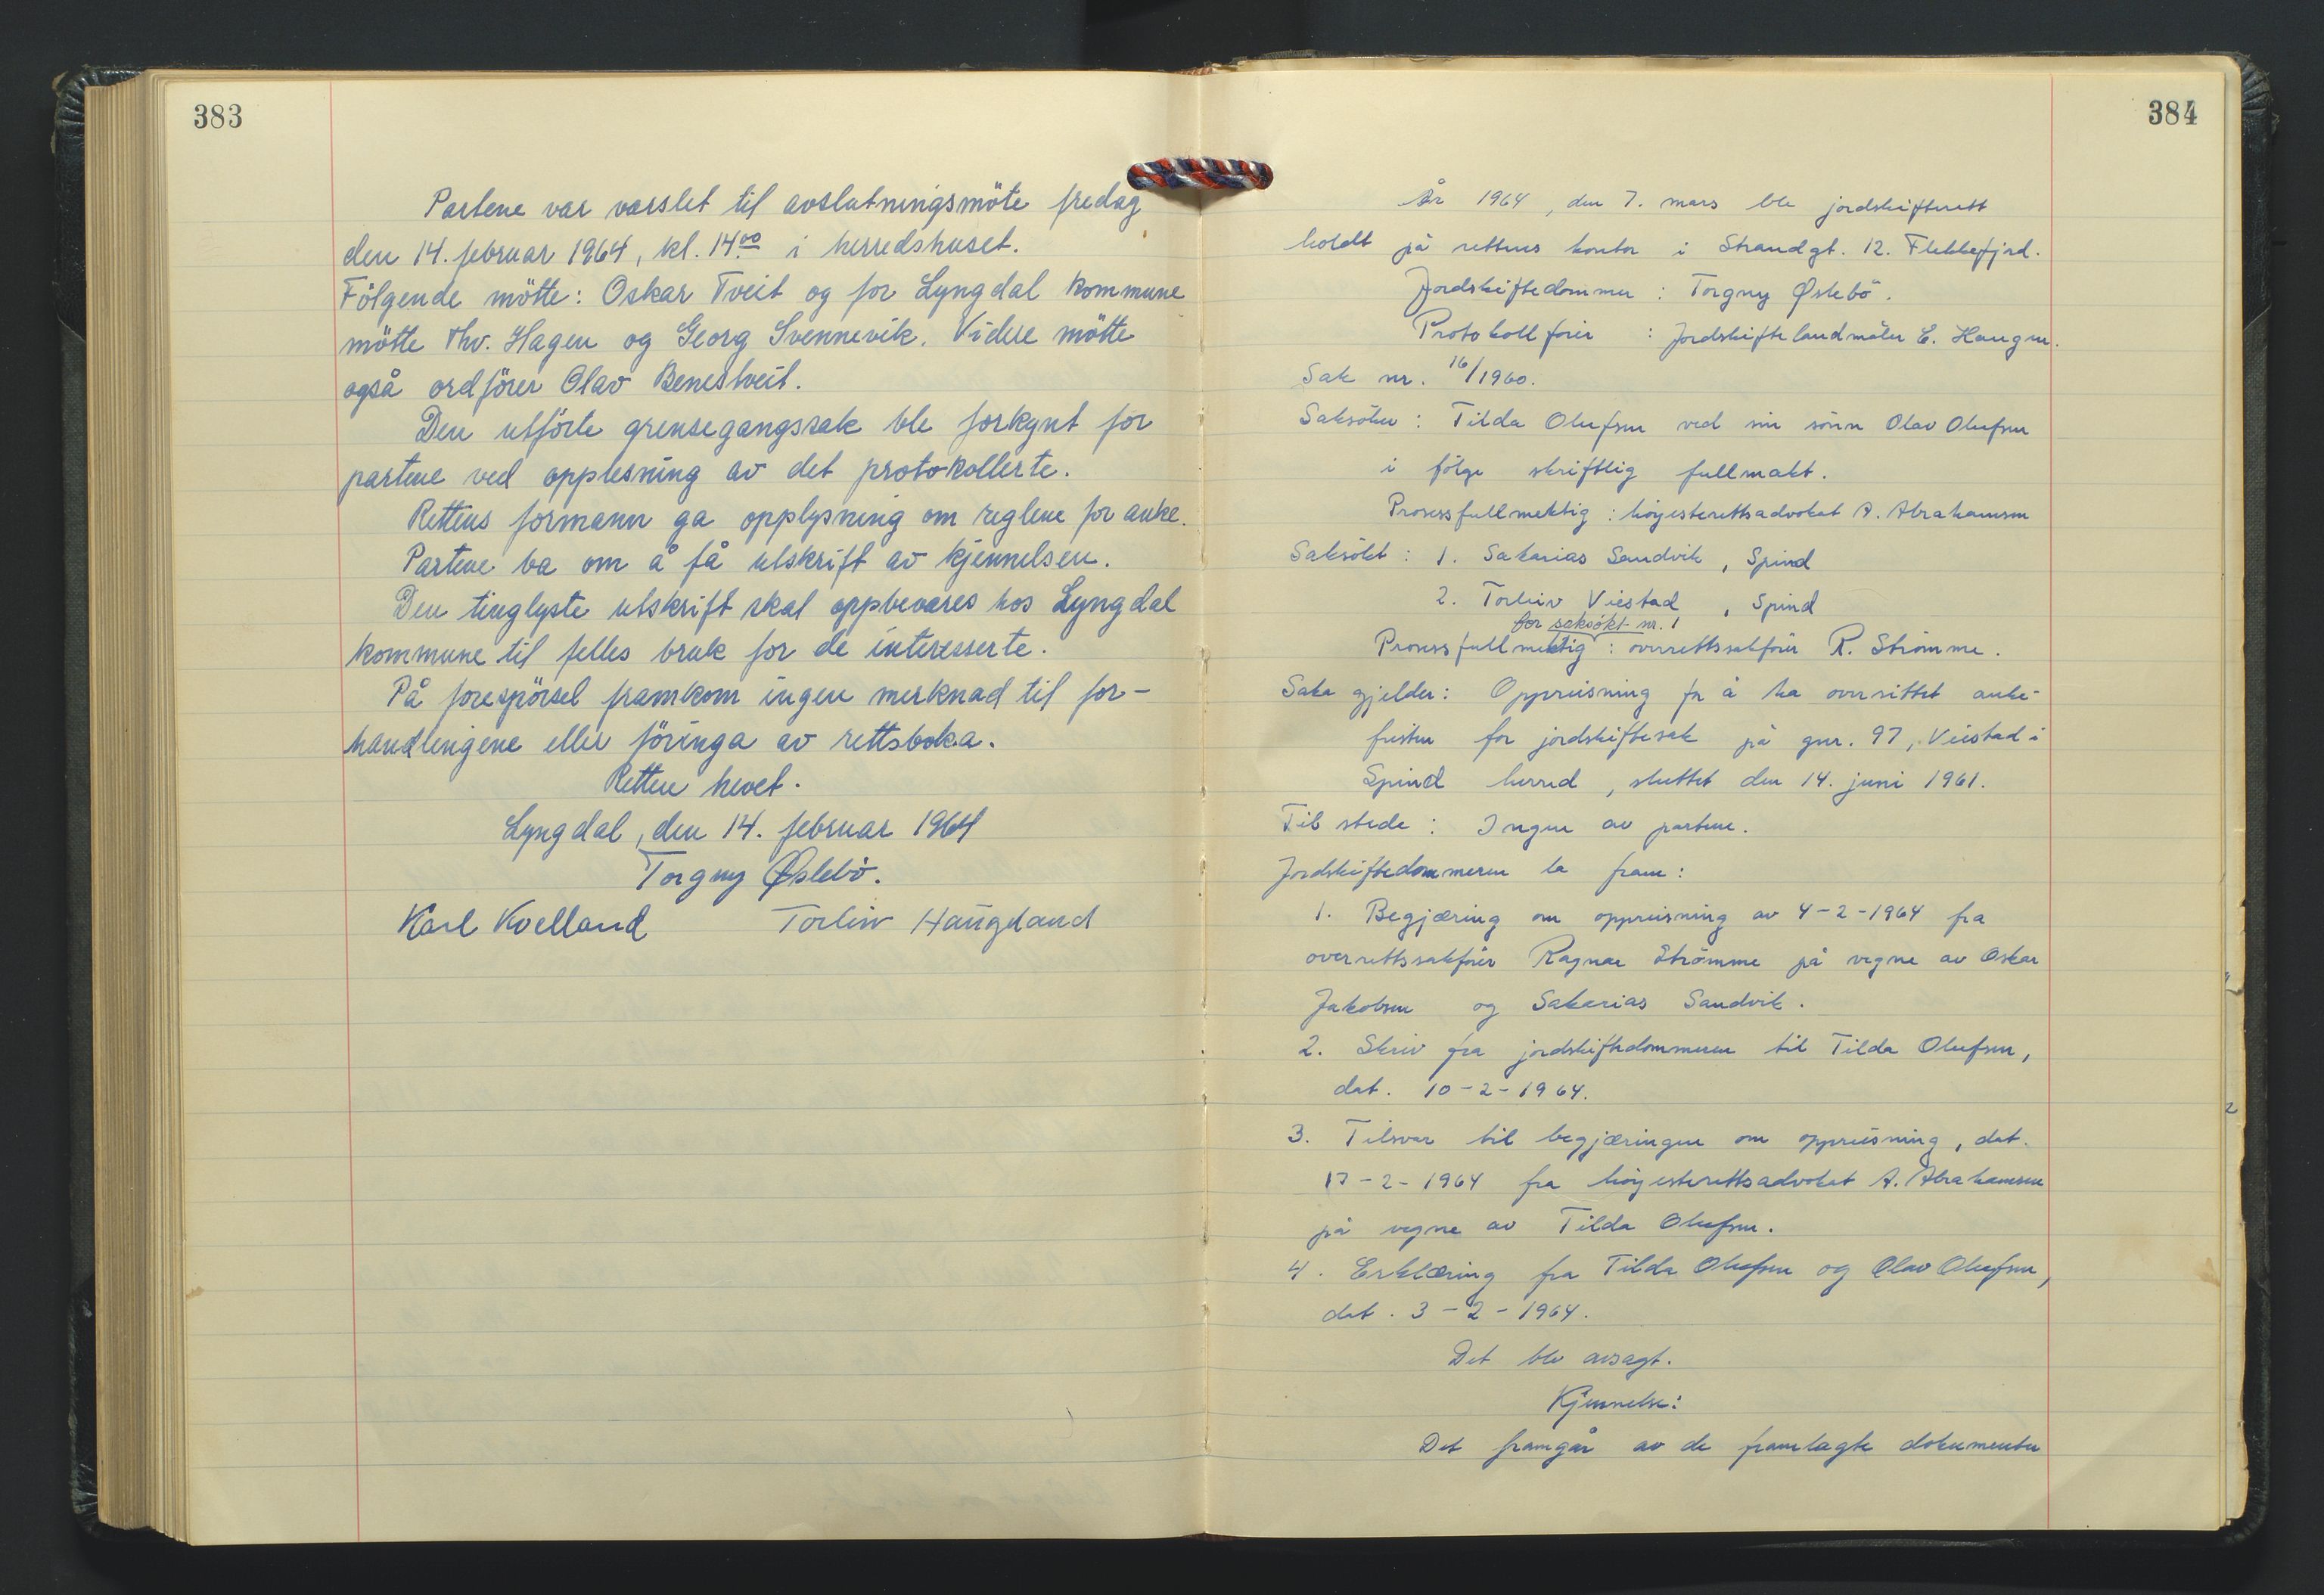 383
Partene var varslet til avslutningsmöte fredag
den 14. februar 1964, kl. 14.00 i herredshuset.
Fölgende mötte: Oskar Tveit og for Lyngdal kommune
mötte Thv. Hagen og Georg Svennevik. Videre mötte
også ordförer Olav Benestveit.
Den utförte grensegangssak ble forkynt for
partene ved opplesning av det protokollerte.
Rettens formann ga opplysning om reglene for anke.
Partene ba om å få utskrift av kjennelsen.
Den tinglyste utskrift skal oppbevares hos Lyngdal
kommune til felles bruk for de interesserte.
På forespörsel framkom ingen merknad til for-
handlingene eller föringa av rettsboka.
Retten hevet.
Lyngdal, den 14. februar 1964
Torgny Øslebö.
Karl Kvelland Torleiv Haugland
384
År 1964, den 7. mars ble jordskifterett
holdt på rettens kontor i Strandgt. 12. Flekkefjord.
Jordskiftedommer : Torgny Øslebö.
Protokollförer : Jordskiftelandmåler E. Haugen.
Sak nr. 16/1960.
Saksöker : Tilda Olufsen ved sin sönn Olav Olufsen
i fölge skriftlig fullmakt.
Prosessfullmektig : höyesterettsadvokat A. Abrahamsen
Saksökt : 1. Sakarias Sandvik, Spind
2. Torleiv Viestad, Spind
for saksökt nr. 1
Prosessfullmektig : overrettssakförer R. Strömme.
Saka gjelder: Oppreisning for å ha oversittet anke-
fristen for jordskiftesak på gnr. 97, Viestad i
Spind herred, sluttet den 14. juni 1961.
Til stede : Ingen av partene.
Jordskiftedommeren la fram:
1. Begjæring om oppreisning av 4-2-1964 fra
overrettssakförer Ragnar Strömme på vegne av Oskar
Jakobsen og Sakarias Sandvik.
2. Skriv fra jordskiftedommeren til Tilda Olufsen,
dat. 10-2-1964.
3. Tilsvar til begjæringen om oppreisning, dat.
17-2-1964 fra höyesterettsadvokat A. Abrahamsen
på vegne av Tilda Olufsen.
4. Erklæring fra Tilda Olufsen og Olav Olufsen,
dat. 3-2-1964.
Det ble avsagt.
Kjennelse:
Det framgår av de framlagte dokumenter